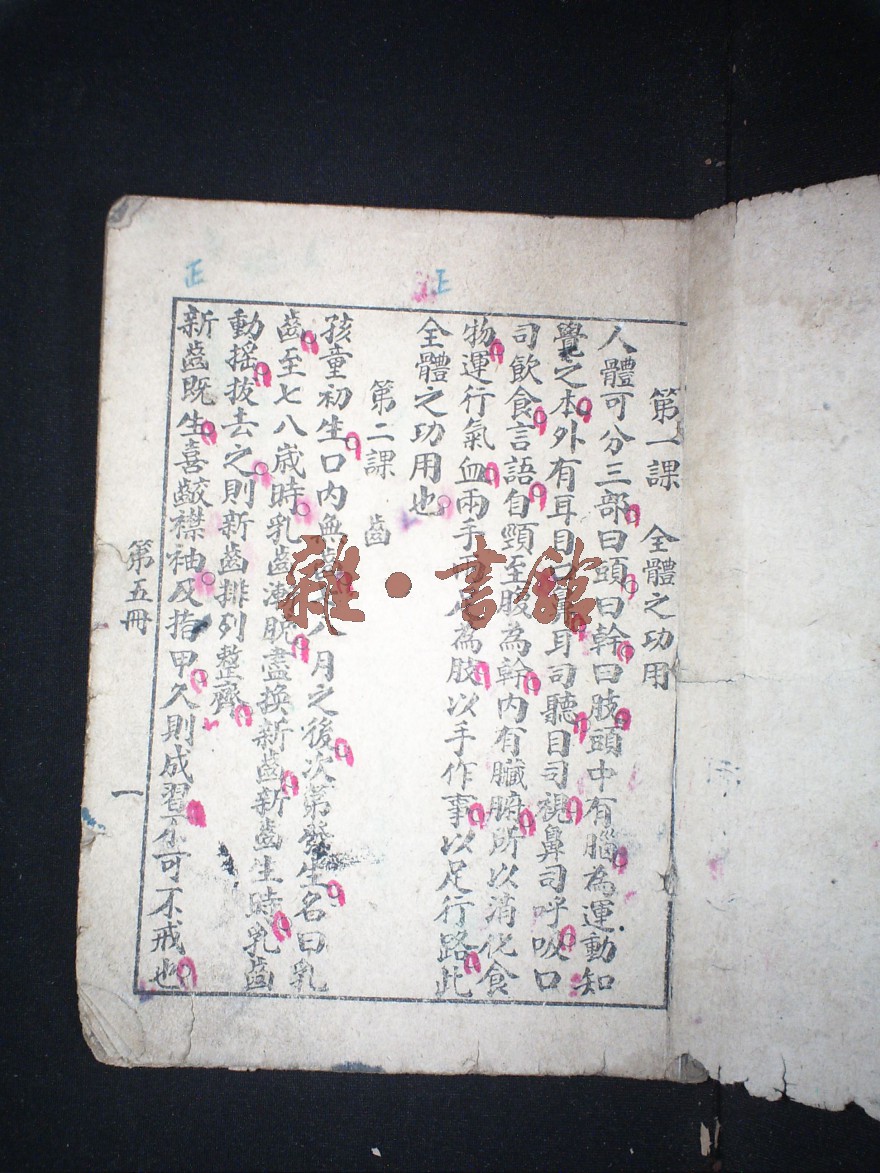 第一課　全體之功用
人體可分三部曰頭曰幹曰肢頭中有腦為運動知
覺之本外有耳目口鼻耳司聽目司視鼻司呼吸口
司飲食言語自頸至股為幹內有臟腑所以消化食
物運行氣血兩手兩足為肢以手作事以足行路此
全體之功用也
第二課　齒
孩童初生口內無齒八月之後次第發生名曰乳
齒至七八歲時乳齒漸脫盡換新齒新齒生時乳齒
動搖拔去之則新齒排列整齊
新齒既生喜齩襟袖及指甲久則成習不可不戒也
第五冊
一
正
正
雜·書館